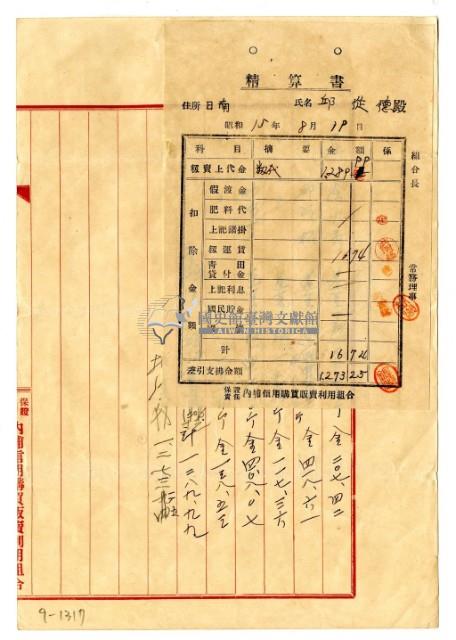 精算書
住所 日南 氏名 邱 從 德殿
昭和 15年 8月 19日
科目 摘要 金額 係
籾賣上代金 籾代 1,289 99
扣除金額
假渡金
肥料代
上記諸掛
籾運賃 16 74
青田貸付金
上記利息
國民貯金
計 16 74
差引支拂金額 1,273 25
組合長
常務理事
保證責任 內埔信用購買販賣利用組合
國史館臺灣文獻館
TAIWAN HISTORICA
金 二〇七、四二
金 四一八、六一
金 一一七、三六
金 四〇八、〇七
金 一三八、五三
計 一二八九、九九
保證 內埔信用購買販賣利用組合
9-1317